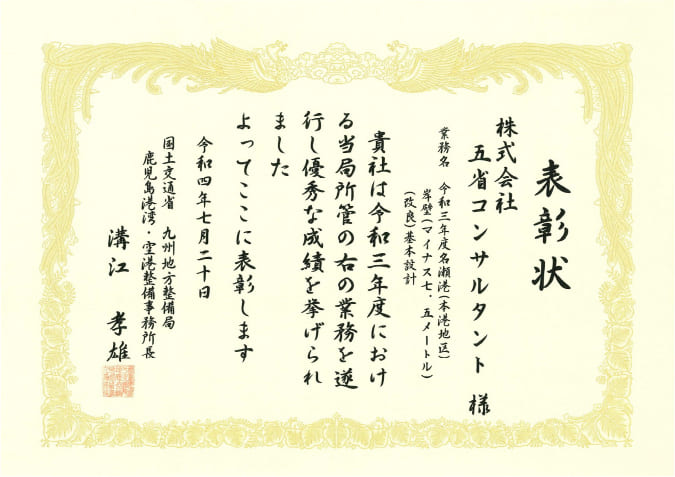 表彰状
株式会社
五省コンサルタント 様
業務名 令和三年度名瀬港(本港地区)
岸壁(マイナス七.五メートル)
(改良)基本設計
貴社は令和三年度におけ
る当局所管の右の業務を遂
行し優秀な成績を挙げられ
ました
よってここに表彰します
令和四年七月二十日
国土交通省 九州地方整備局
鹿児島港湾・空港整備事務所長
溝江 孝雄